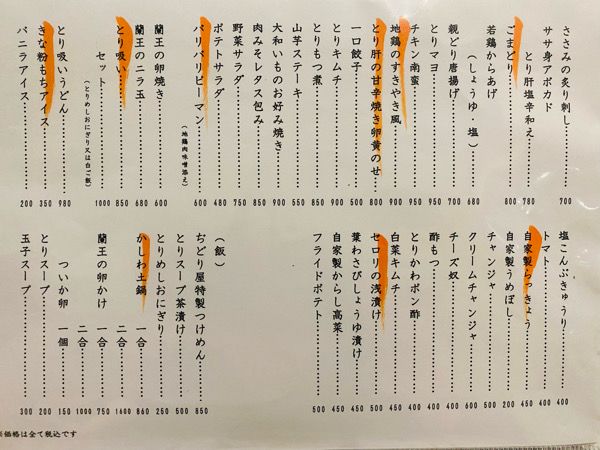 ささみの炙り刺し 700
ササ身アボカド
とり肝塩辛和え 780
ごまどり 800
若鶏からあげ
(しょうゆ・塩) 680
親どり唐揚げ 700
とりマヨ 950
チキン南蛮 950
地鶏のすきやき風 900
とり肝の甘辛焼き卵黄のせ 800
一口餃子
とりキムチ
とりもつ煮
山芋ステーキ
大和いものお好み焼き 900
肉みそレタス包み 700
野菜サラダ 750
ポテトサラダ 350
パリパリピーマン 480
(地鶏肉味噌添え) 600
蘭王の卵焼き 600
蘭王のニラ玉 680
とり吸い 850
セット 1000
(とりめしおにぎり又は白ご飯)
とり吸いうどん 980
きな粉もちアイス 350
バニラアイス 200
塩こんぶきゅうり 400
トマト 400
自家製らっきょう 450
自家製うめぼし 200
チャンジャ 500
クリームチャンジャ 600
チーズ奴 400
酢もつ 400
とりかわポン酢 400
白菜キムチ 450
セロリの浅漬け 500
葉わさびしょうゆ漬け 450
自家製からし高菜 450
フライドポテト 500
(飯)
ぢどり屋特製つけめん 850
とりスープ茶漬け 500
とりめしおにぎり 250
かしわ土鍋 一合 860
二合 1600
蘭王の卵かけ 一合 750
二合 1000
ついか卵 一個 150
とりスープ 200
玉子スープ 300
※価格は全て税込です